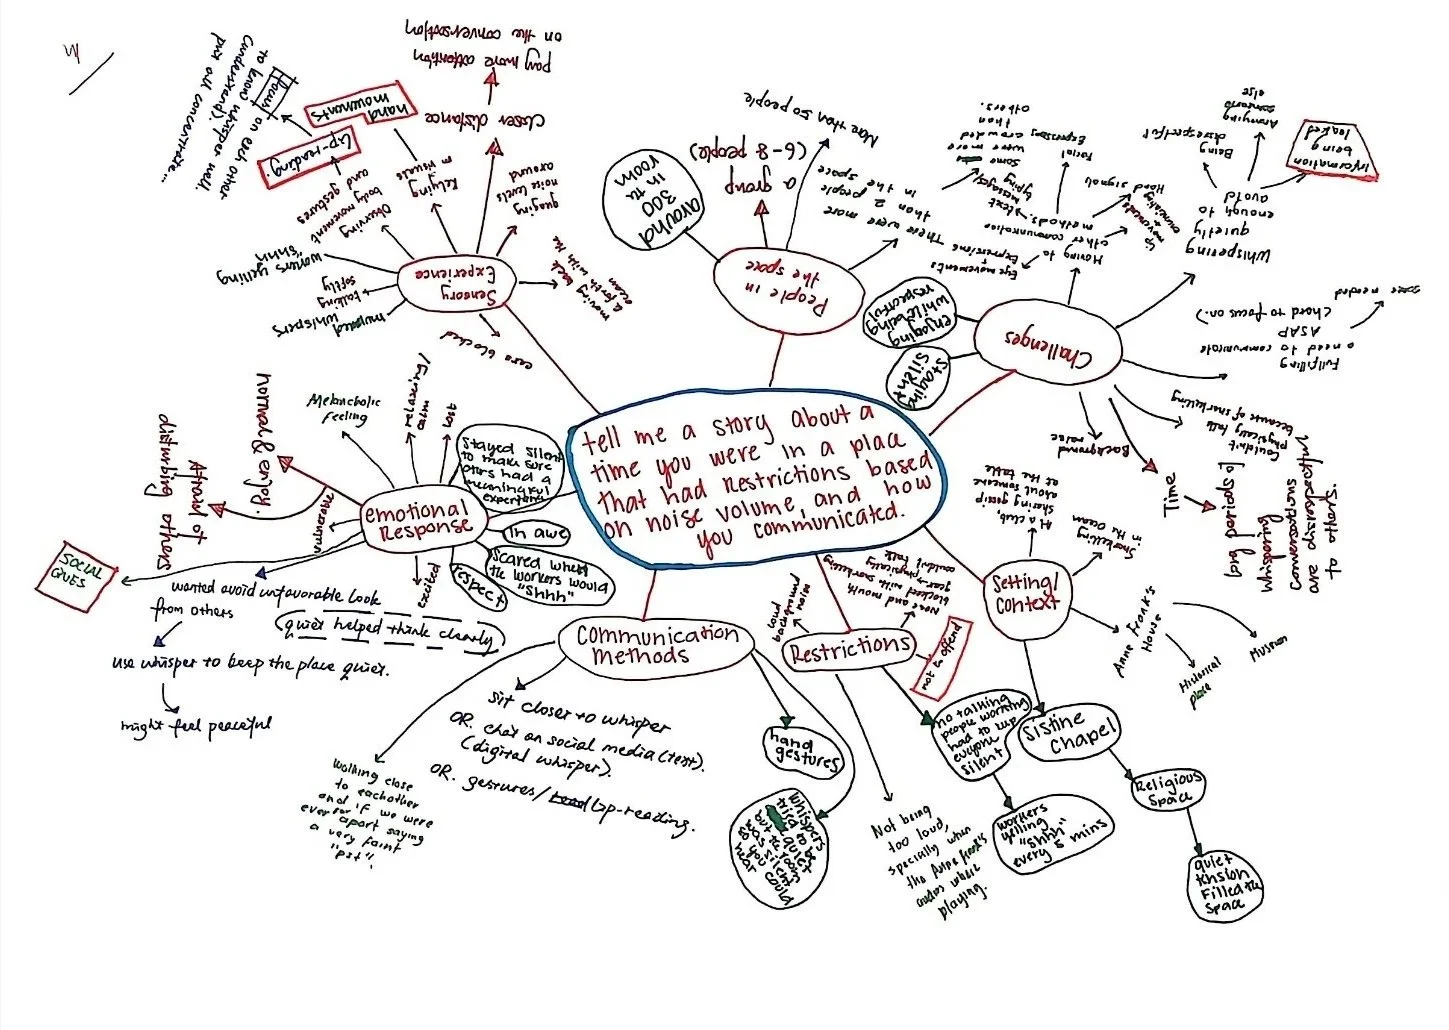 tell me a story about a
time you were in a place
that had restrictions based
on noise volume, and how
you communicated.
Sensory
Experience
ears blocked
moving back
& forth with the
ocean
gauging
noise levels
around
Closer distance
pay more attention
on the conversation
Relying
in visuals
hand
movements
Observing
body movement
and gestures
Lip-reading
focus on each other
to know whisper well.
(understand).
put all concentrate...
workers yelling
"shhh"
whispers
+ talking
softly
muted
People in
the space
around
300
in the
room
a group
(6-8 people)
More than 50 people
There were more
than 2 people
in the space
Some were more
crowded
than
others.
Challenges
enjoying
while being
respectful
Staying
silent
Moving to
other communication
methods.
Eye movements
+
Expressions
text
messages/
typing
Facial
Expressions
Hand signal
Lip
movements
Whispering
quietly
enough to
avoid
Being
disrespectful
Annoying
someone
else
information
being
leaked
Fulfilling
a need to communicate
ASAP
(hard to focus on.)
space needed
Couldn't
physically talk
because of snorkelling
Background
noise
Time
Setting/
Context
At a club,
sharing gossip
about someone
at the table
Snorkelling
in the Ocean
Anne Frank's
House
Historical
place
Museum
Sistine
Chapel
Religious
Space
quiet
tension
Filled the
space
Restrictions
Loud
background
noise
nose and mouth
blocked with snorkelling
gear - physically
couldn't talk
not to offend
no talking
people working
had to keep
everyone
silent
workers
yelling
"shhh"
every 5 mins
Not being
too loud,
specially when
playing.
Communication
Methods
hand
gestures
whispers
tried to be
quiet
but the room
was silent
so you could
hear
sit closer to whisper
OR. chat on social media (text).
(digital whisper).
OR. gestures/lip-reading.
Walking close
to eachother
and if we were
ever far apart saying
a very faint
"pst".
emotional
Response
Stayed silent
to make sure
others had a
meaningful
experience
In awe
Scared when
the workers would
"Shhh"
respect
excited
lost
relaxing/
calm
Melancholic
feeling
normal & enjoy.
Afraid of
disturbing others
vulnerable
SOCIAL
QUES
wanted avoid unfavorable look
from others
use whisper to keep the place quiet.
might feel peaceful
quiet helped think clearly